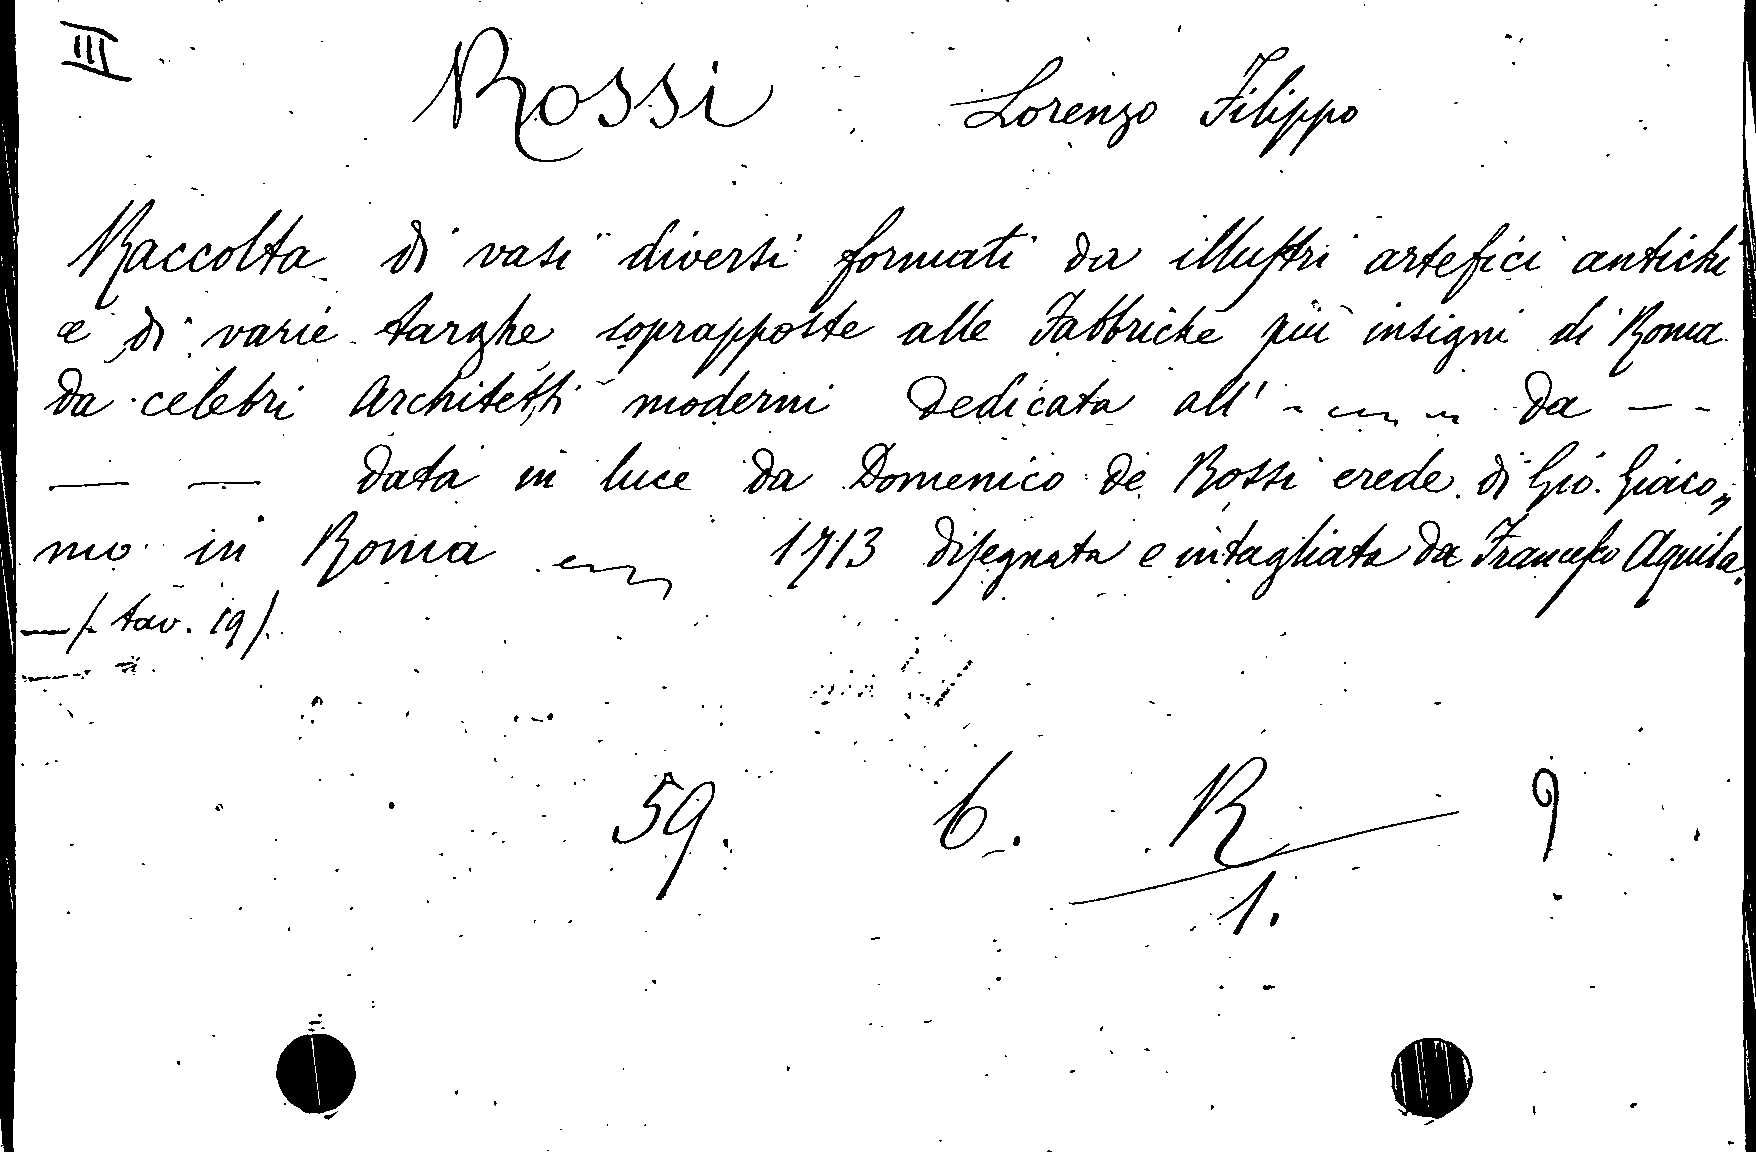 III
Rossi Lorenzo Filippo
Raccolta di vasi diversi formati da illustri artefici antichi
e di varie targhe soprapposte alle Fabbriche più insigni di Roma
da celebri Architetti moderni dedicata all' - ~ ~ da — -
— — data in luce da Domenico de Rossi erede di Gio. Giaco„
mo in Roma ~ 1713 disegnata e intagliata da Francesco Aquila.
— /. tav. 19/.
59. 6. R 9
1.